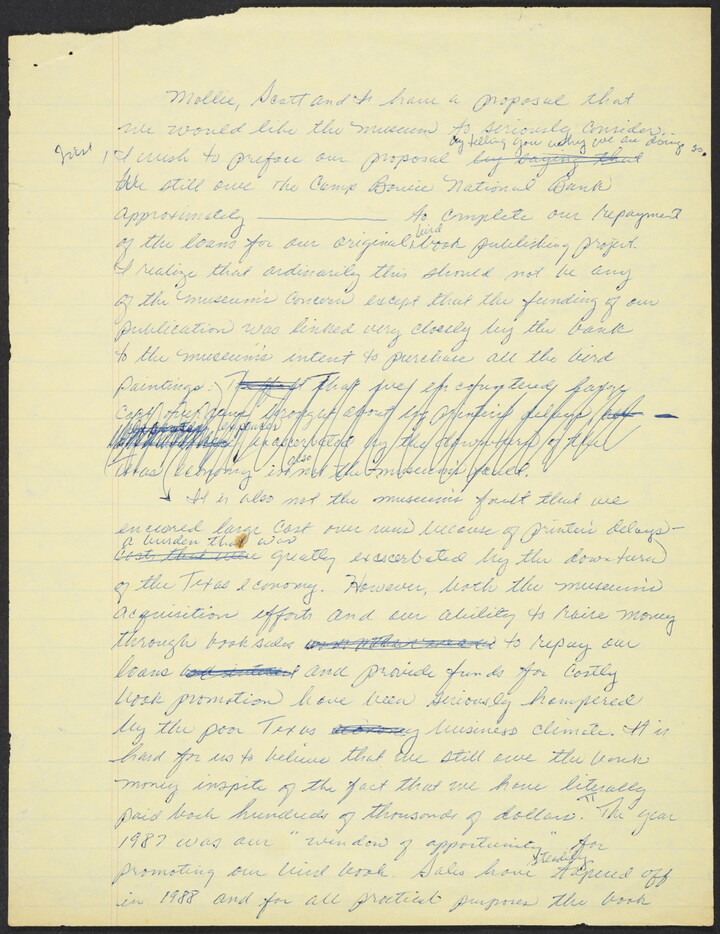 Mollie, Scott and I have a proposal that
we would like the museum to seriously consider.
First, I wish to preface our proposal by saying that by telling you why we are doing so.
We still owe the Camp Bowie National Bank
approximately ________ to complete our repayment
of the loans for our original bird book publishing project.
I realize that ordinarily this should not be any
of the museum's concern except that the funding of our
publication was linked very closely by the bank
to the museum's intent to purchase all the bird
paintings. That we encountered large
cost over runs brought about by printer's delays
expenses exacerbated by the downturn of the
Texas economy is also not the museum's fault.
It is also not the museum's fault that we
encured large cost over runs because of printer's delays -
a burden that was
costs that were greatly exascerbated by the downturn
of the Texas economy. However, both the museum's
acquisition efforts and our ability to raise money
through book sales to repay our
loans and interest and provide funds for costly
book promotion have been seriously hampered
by the poor Texas economy business climate. It is
hard for us to believe that we still owe the bank
money inspite of the fact that we have literally
paid back hundreds of thousands of dollars. The year
1987 was our "window of opportunity" for
promoting our bird book. Sales have steadily tapered off
in 1988 and for all practical purposes the book